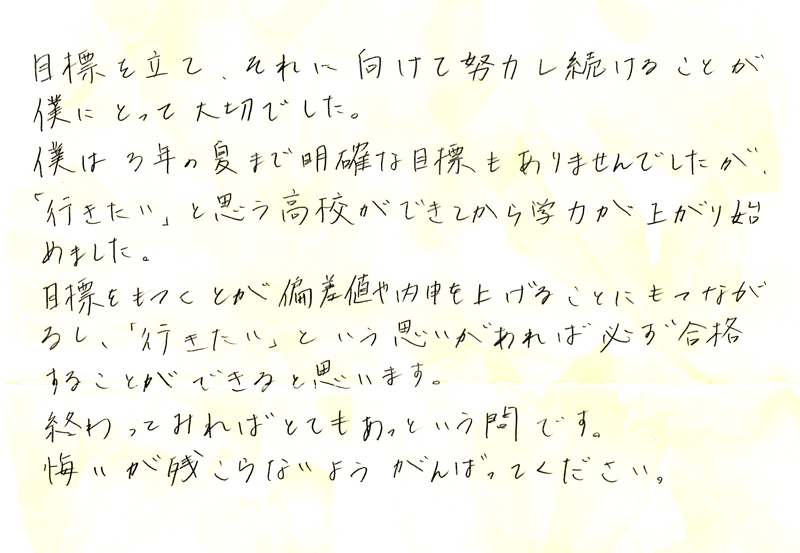 目標を立て、それに向けて努力し続けることが
僕にとって大切でした。
僕は3年の夏まで明確な目標もありませんでしたが、
「行きたい」と思う高校ができてから学力が上がり始
めました。
目標をもつくとが偏差値や内申を上げることにもつなが
るし、「行きたい」という思いがあれば必ず合格
することができると思います。
終わってみればとてもあっという間です。
悔いが残こらないようがんばってください。